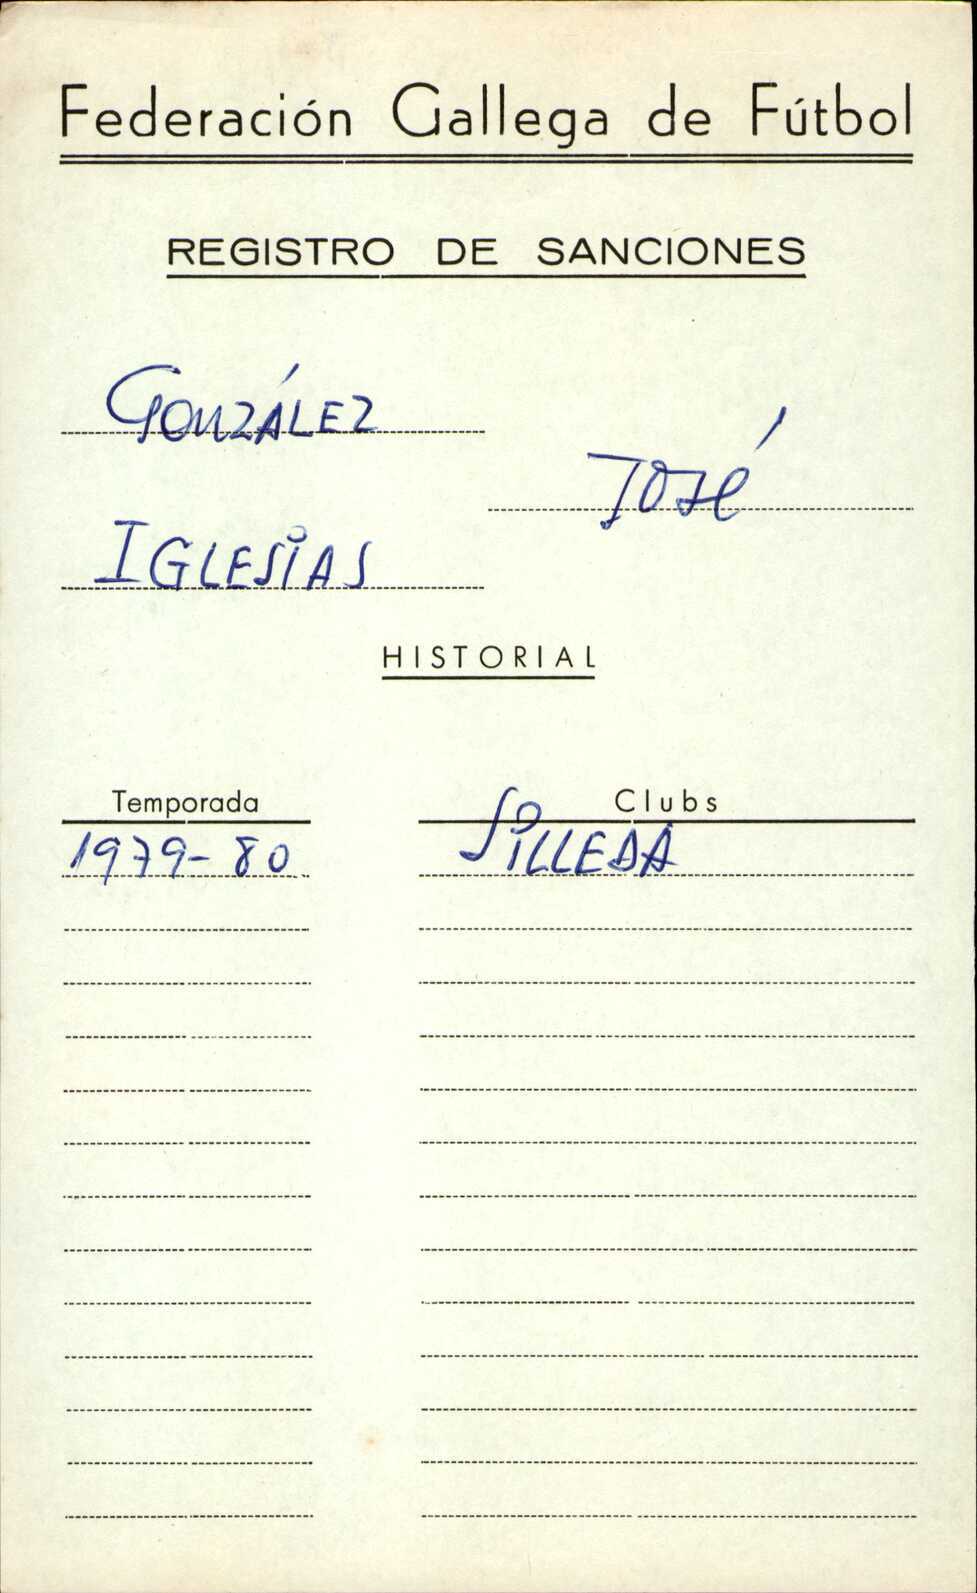 Federación Gallega de Fútbol
REGISTRO DE SANCIONES
GONZÁLEZ
JOSÉ
IGLESIAS
HISTORIAL
Temporada Clubs
1979-80 SILLEDA